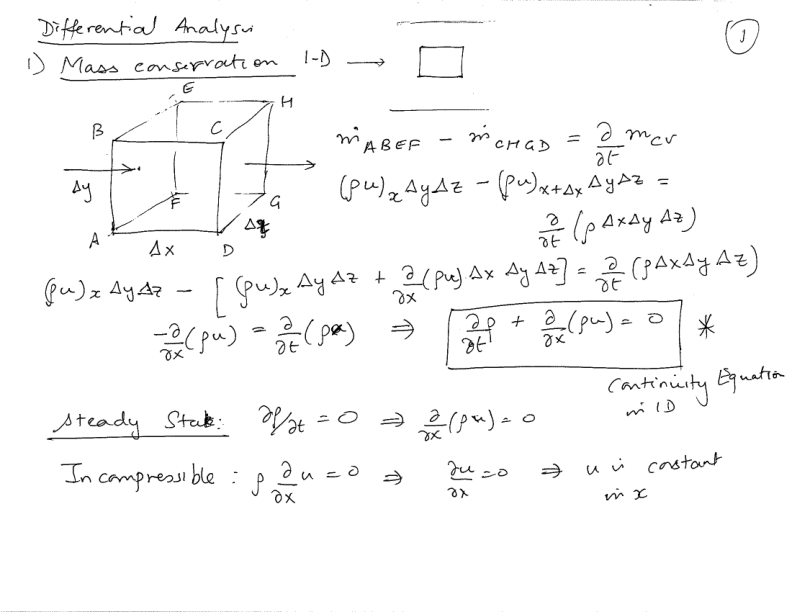 Differential Analysis
1
1) Mass conservation 1-D →
E
H
B
C
Δy
F
G
A
Δx
D
Δz
ṁ_ABEF − ṁ_CHGD = ∂/∂t m_CV
(ρu)_x ΔyΔz − (ρu)_x+Δx ΔyΔz =
∂/∂t (ρ ΔxΔyΔz)
(ρu)_x ΔyΔz − [(ρu)_x ΔyΔz + ∂/∂x (ρu) Δx ΔyΔz] = ∂/∂t (ρΔxΔyΔz)
−∂/∂x (ρu) = ∂/∂t (ρ) ⇒ ∂ρ/∂t + ∂/∂x (ρu) = 0 *
Continuity Equation
in 1D
Steady State: ∂ρ/∂t = 0 ⇒ ∂/∂x (ρu) = 0
Incompressible : ρ ∂/∂x u = 0 ⇒ ∂u/∂x = 0 ⇒ u is constant
in x